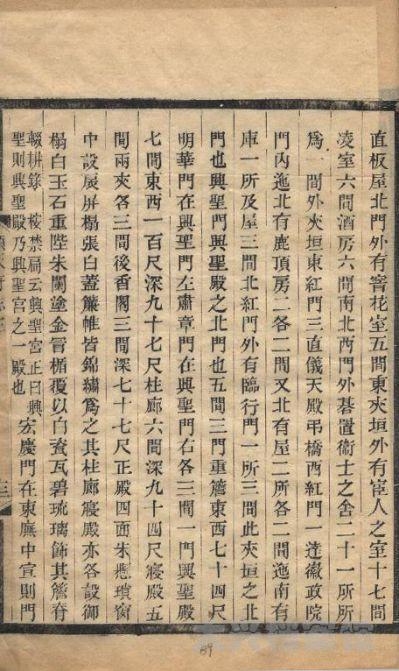 直板屋北門外有窨花室五間東夾垣外有宦人之室十七間
凌室六間酒房六間南北西門外棊置衞士之舍二十一所所
爲一間外夾垣東紅門三直儀天殿弔橋西紅門一達徽政院
門內迤北有鹿頂房二各二間又北有屋二所各二間迤南有
庫一所及屋三間北紅門外有臨行門一所三間此夾垣之北
門也興聖門興聖殿之北門也五間三門重簷東西七十四尺
明華門在興聖門左肅章門在興聖門右各三間一門興聖殿
七間東西一百尺深九十七尺柱廊六間深九十四尺寢殿五
間兩夾各三間後香閣三間深七十七尺正殿四面朱懸瑣窗
中設扆屏榻張白蓋簾帷皆錦繡爲之其柱廊寢殿亦各設御
榻白玉石重陛朱闌塗金冒楯覆以白瓷瓦碧琉璃飾其簷脊
輟耕錄 桉禁扁云興聖宮正曰興
聖則興聖殿乃興聖宮之一殿也
宏慶門在東廡中宣則門
89